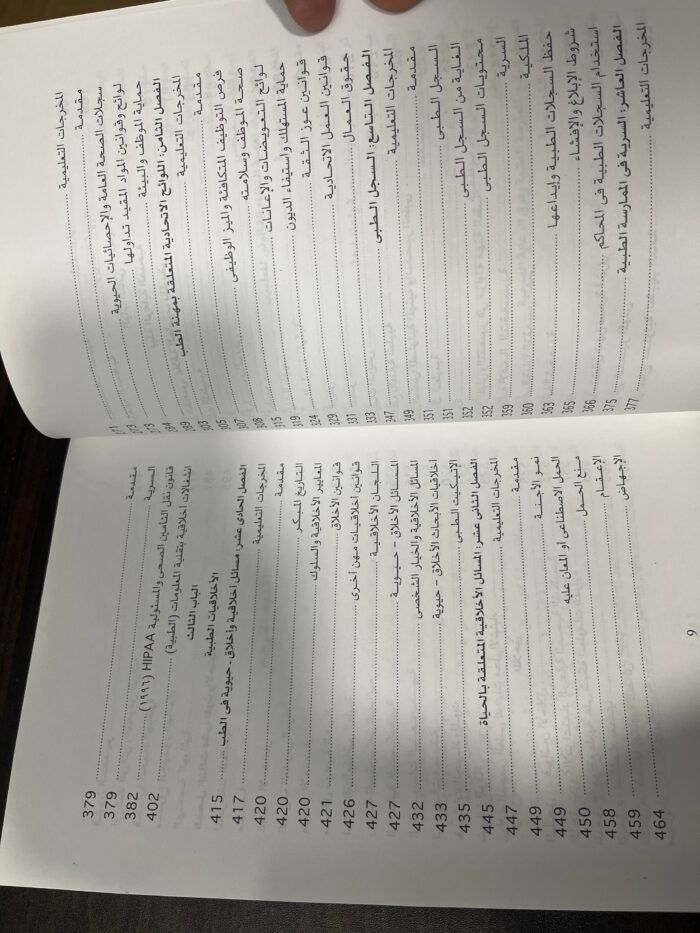 المخرجات التعليمية 271
مقدمة 273
سجلات الصحة العامة والإحصائيات الحيوية 273
لوائح وقوانين المواد المقيد تداولها
حماية الموظف والبيئة
الفصل الثامن: اللوائح الاتحادية المتعلقة بمهنة الطب
المخرجات التعليمية 305
مقدمة 307
فرص التوظيف المتكافئة والميز الوظيفى 308
صحة الموظف وسلامته 315
لوائح التعويضات والإعانات 319
حماية المستهلك واستيفاء الديون 324
قوانين عوز الثقة 329
قوانين العمل الاتحادية 331
حقوق العمال 333
الفصل التاسع: السجل الطبى 347
المخرجات التعليمية 349
مقدمة 351
السجل الطبى 351
الغاية من السجل الطبى 352
محتويات السجل الطبى 352
السرية 359
الملكية 360
حفظ السجلات الطبية وإيداعها 363
شروط الإبلاغ والإفشاء 365
استخدام السجلات الطبية فى المحاكم 366
الفصل العاشر: السرية فى الممارسة الطبية 375
المخرجات التعليمية 377
مقدمة 379
السرية 379
قانون نقل التامين الصحى والمسئولية HIPAA (١٩٩٦) 382
انشغالات أخلاقية بتقنية المعلومات (الطبية) 402
الباب الثالث
الأخلاقيات الطبية
الفصل الحادى عشر: مسائل أخلاقية وأخلاق - حيوية فى الطب 415
المخرجات التعليمية 417
مقدمة 420
التاريخ المبكر 420
المعايير الأخلاقية والسلوك 420
قوانين الأخلاق 421
قوانين أخلاقيات مهن أخرى 426
اللجان الأخلاقية 427
المسائل الأخلاق - حيوية 427
المسائل الأخلاقية والخيار الشخصى 432
أخلاقيات الأبحاث الأخلاق - حيوية 433
الإتيكيت الطبى 435
الفصل الثانى عشر: المسائل الأخلاقية المتعلقة بالحياة 445
المخرجات التعليمية 447
مقدمة 449
نمو الأجنة 449
الحمل الاصطناعى أو المعان عليه 450
منع الحمل 458
الإعقام 459
الإجهاض 464
9